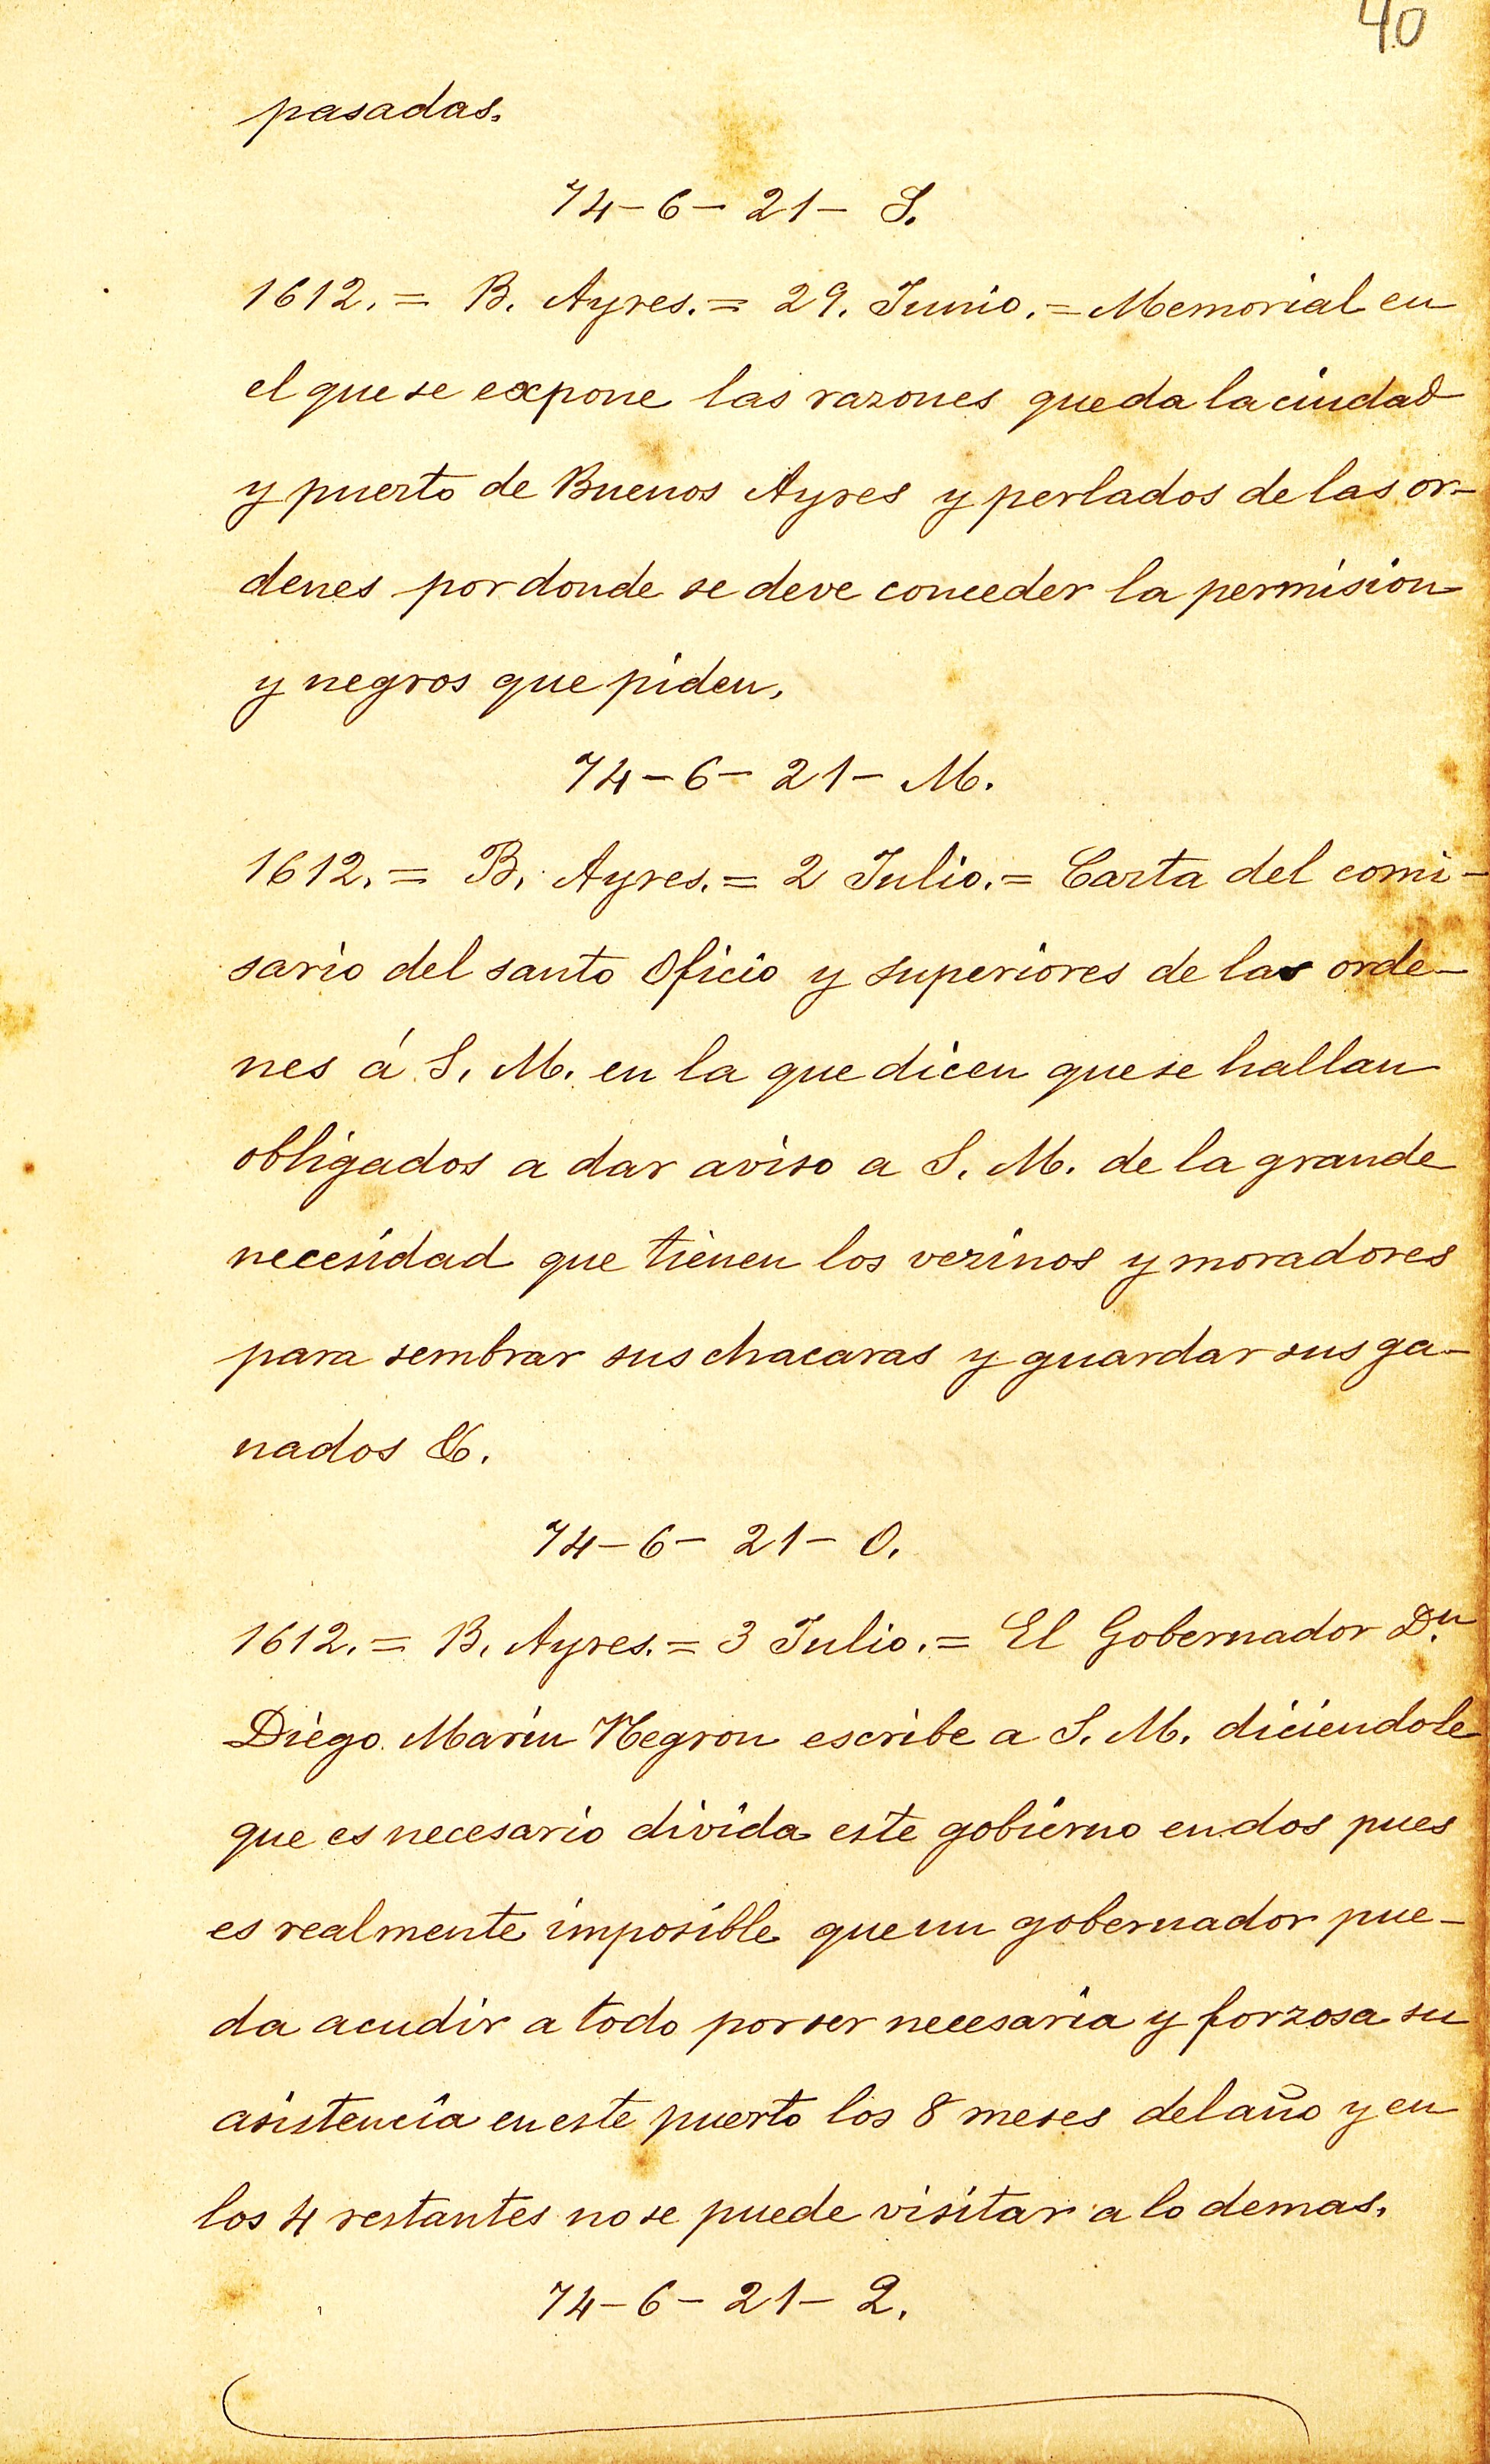 40
pasadas.
74-6-21-S.
1612.= B. Ayres.= 29. Junio.= Memorial en
el que se expone las razones que da la ciudad
y puerto de Buenos Ayres y perlados de las or-
denes por donde se deve conceder la permision
y negros que piden.
74-6-21-M.
1612.= B. Ayres.= 2 Julio.= Carta del comi-
sario del santo Oficio y superiores de las orde-
nes á S. M. en la que dicen que se hallan
obligados a dar aviso a S. M. de la grande
necesidad que tienen los vezinos y moradores
para sembrar sus chacaras y guardar sus ga-
nados &.
74-6-21-O.
1612.= B. Ayres.= 3 Julio.= El Gobernador Dn.
Diego Marin Negron escribe a S. M. diciendole
que es necesario divida este gobierno en dos pues
es realmente imposible que un gobernador pue-
da acudir a todo por ser necesaria y forzosa su
asistencia en este puerto los 8 meses del año y en
los 4 restantes no se puede visitar a lo demas.
74-6-21-Q.